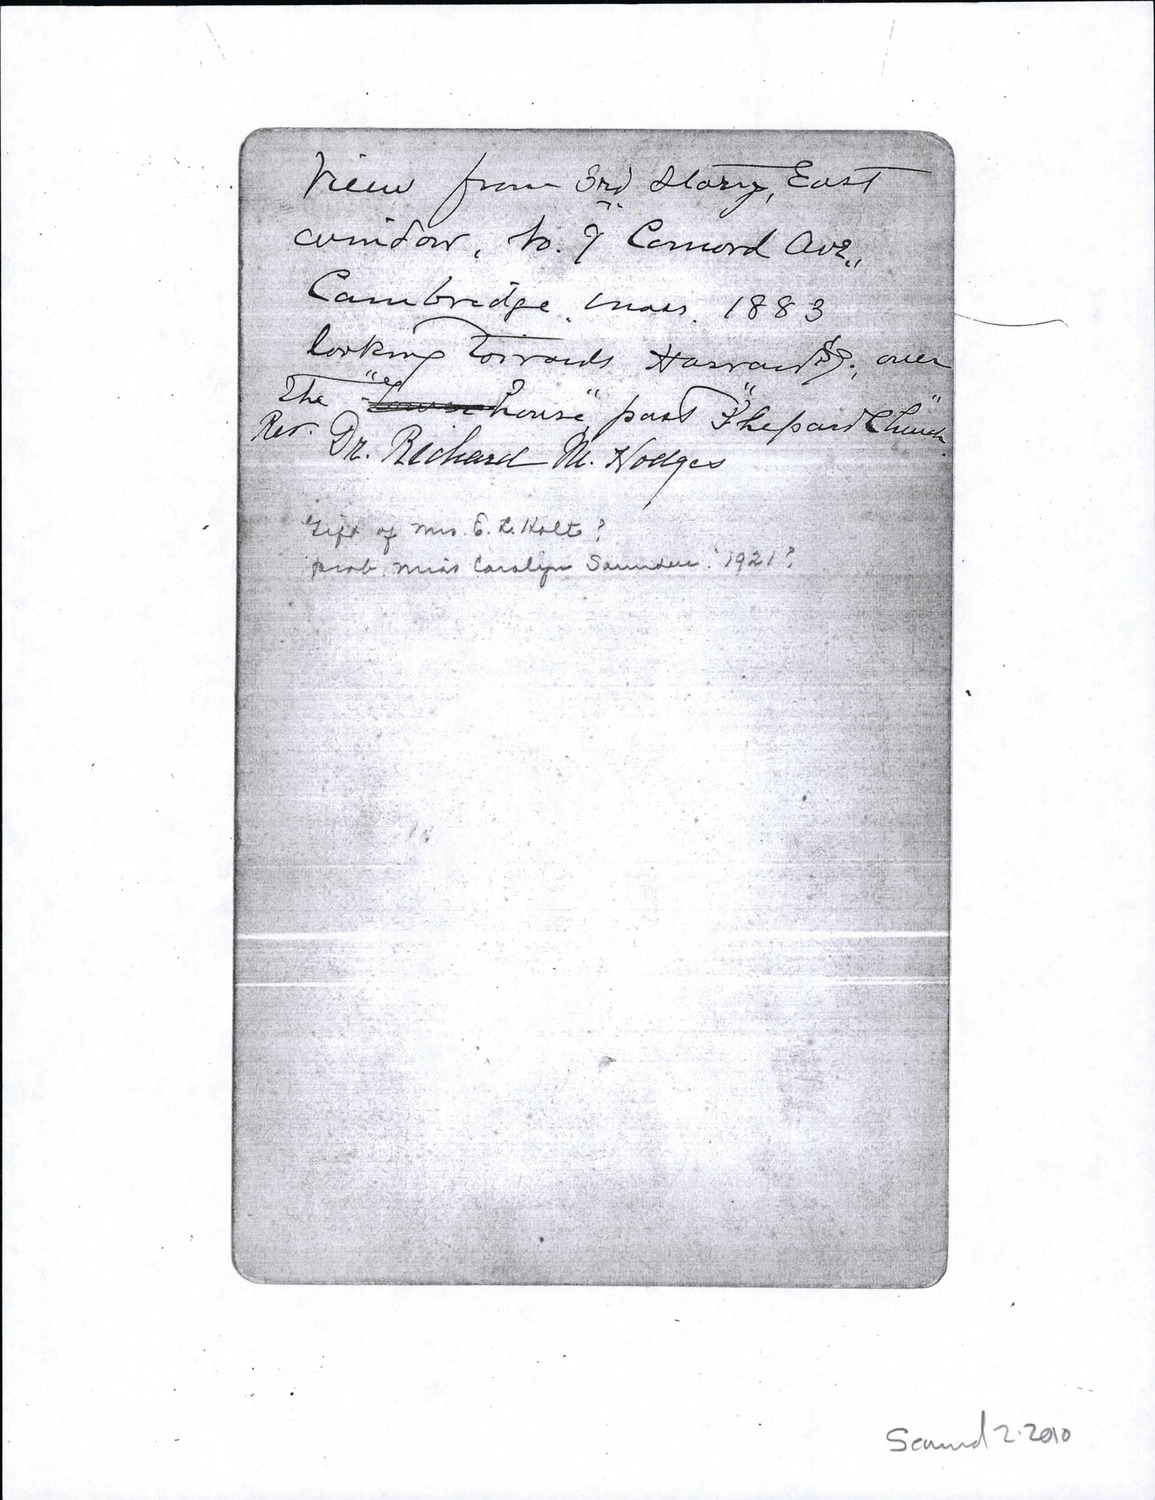 View from 3rd Story, East
window, No. 7 Concord Ave.,
Cambridge. Mass. 1883
looking towards Harvard Sq., over
the house" past "Shepard Church"
Rev. Dr. Richard M. Hodges
Gift of Mrs. E. L. Holt?
prob. Miss Carolyn Saunders. 1921?
Scanned 2.2010